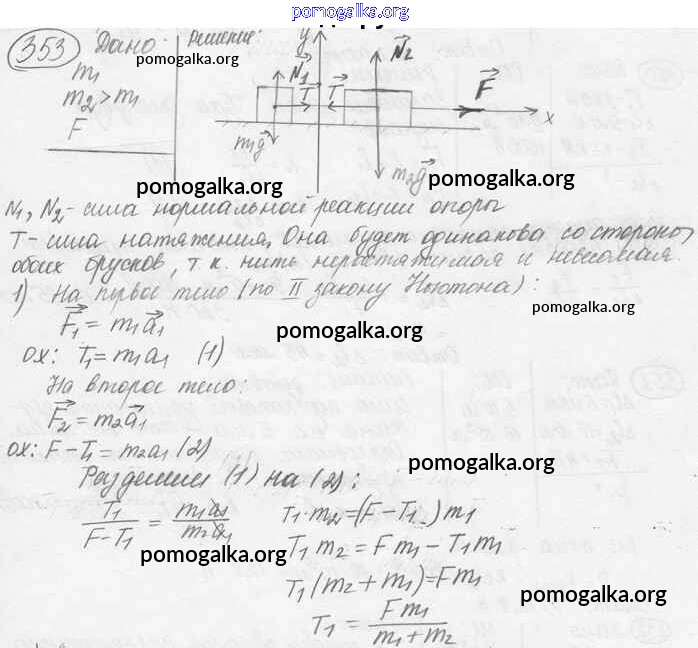 pomogalka.org
353 Дано Решение:
pomogalka.org
m₁
m₂ > m₁
F
y N₁ T T N₂ F x
m₁g m₂g
pomogalka.org
pomogalka.org
pomogalka.org
N₁, N₂ - сила нормальной реакции опоры
T - сила натяжения, Она будет одинакова со стороны
обоих брусков, т.к. нить нерастяжимая и невесомая.
1) На первое тело (по II закону Ньютона):
pomogalka.org
F₁ = m₁a₁
pomogalka.org
ox: T₁ = m₁a₁ (1)
На второе тело:
F₂ = m₂a₁
ox: F - T₁ = m₂a₁ (2)
pomogalka.org
Разделим (1) на (2):
T₁/(F - T₁) = m₁a₁/(m₂a₁)
T₁·m₂ = (F - T₁)m₁
pomogalka.org
T₁m₂ = Fm₁ - T₁m₁
T₁(m₂ + m₁) = Fm₁
pomogalka.org
T₁ = Fm₁/(m₁ + m₂)